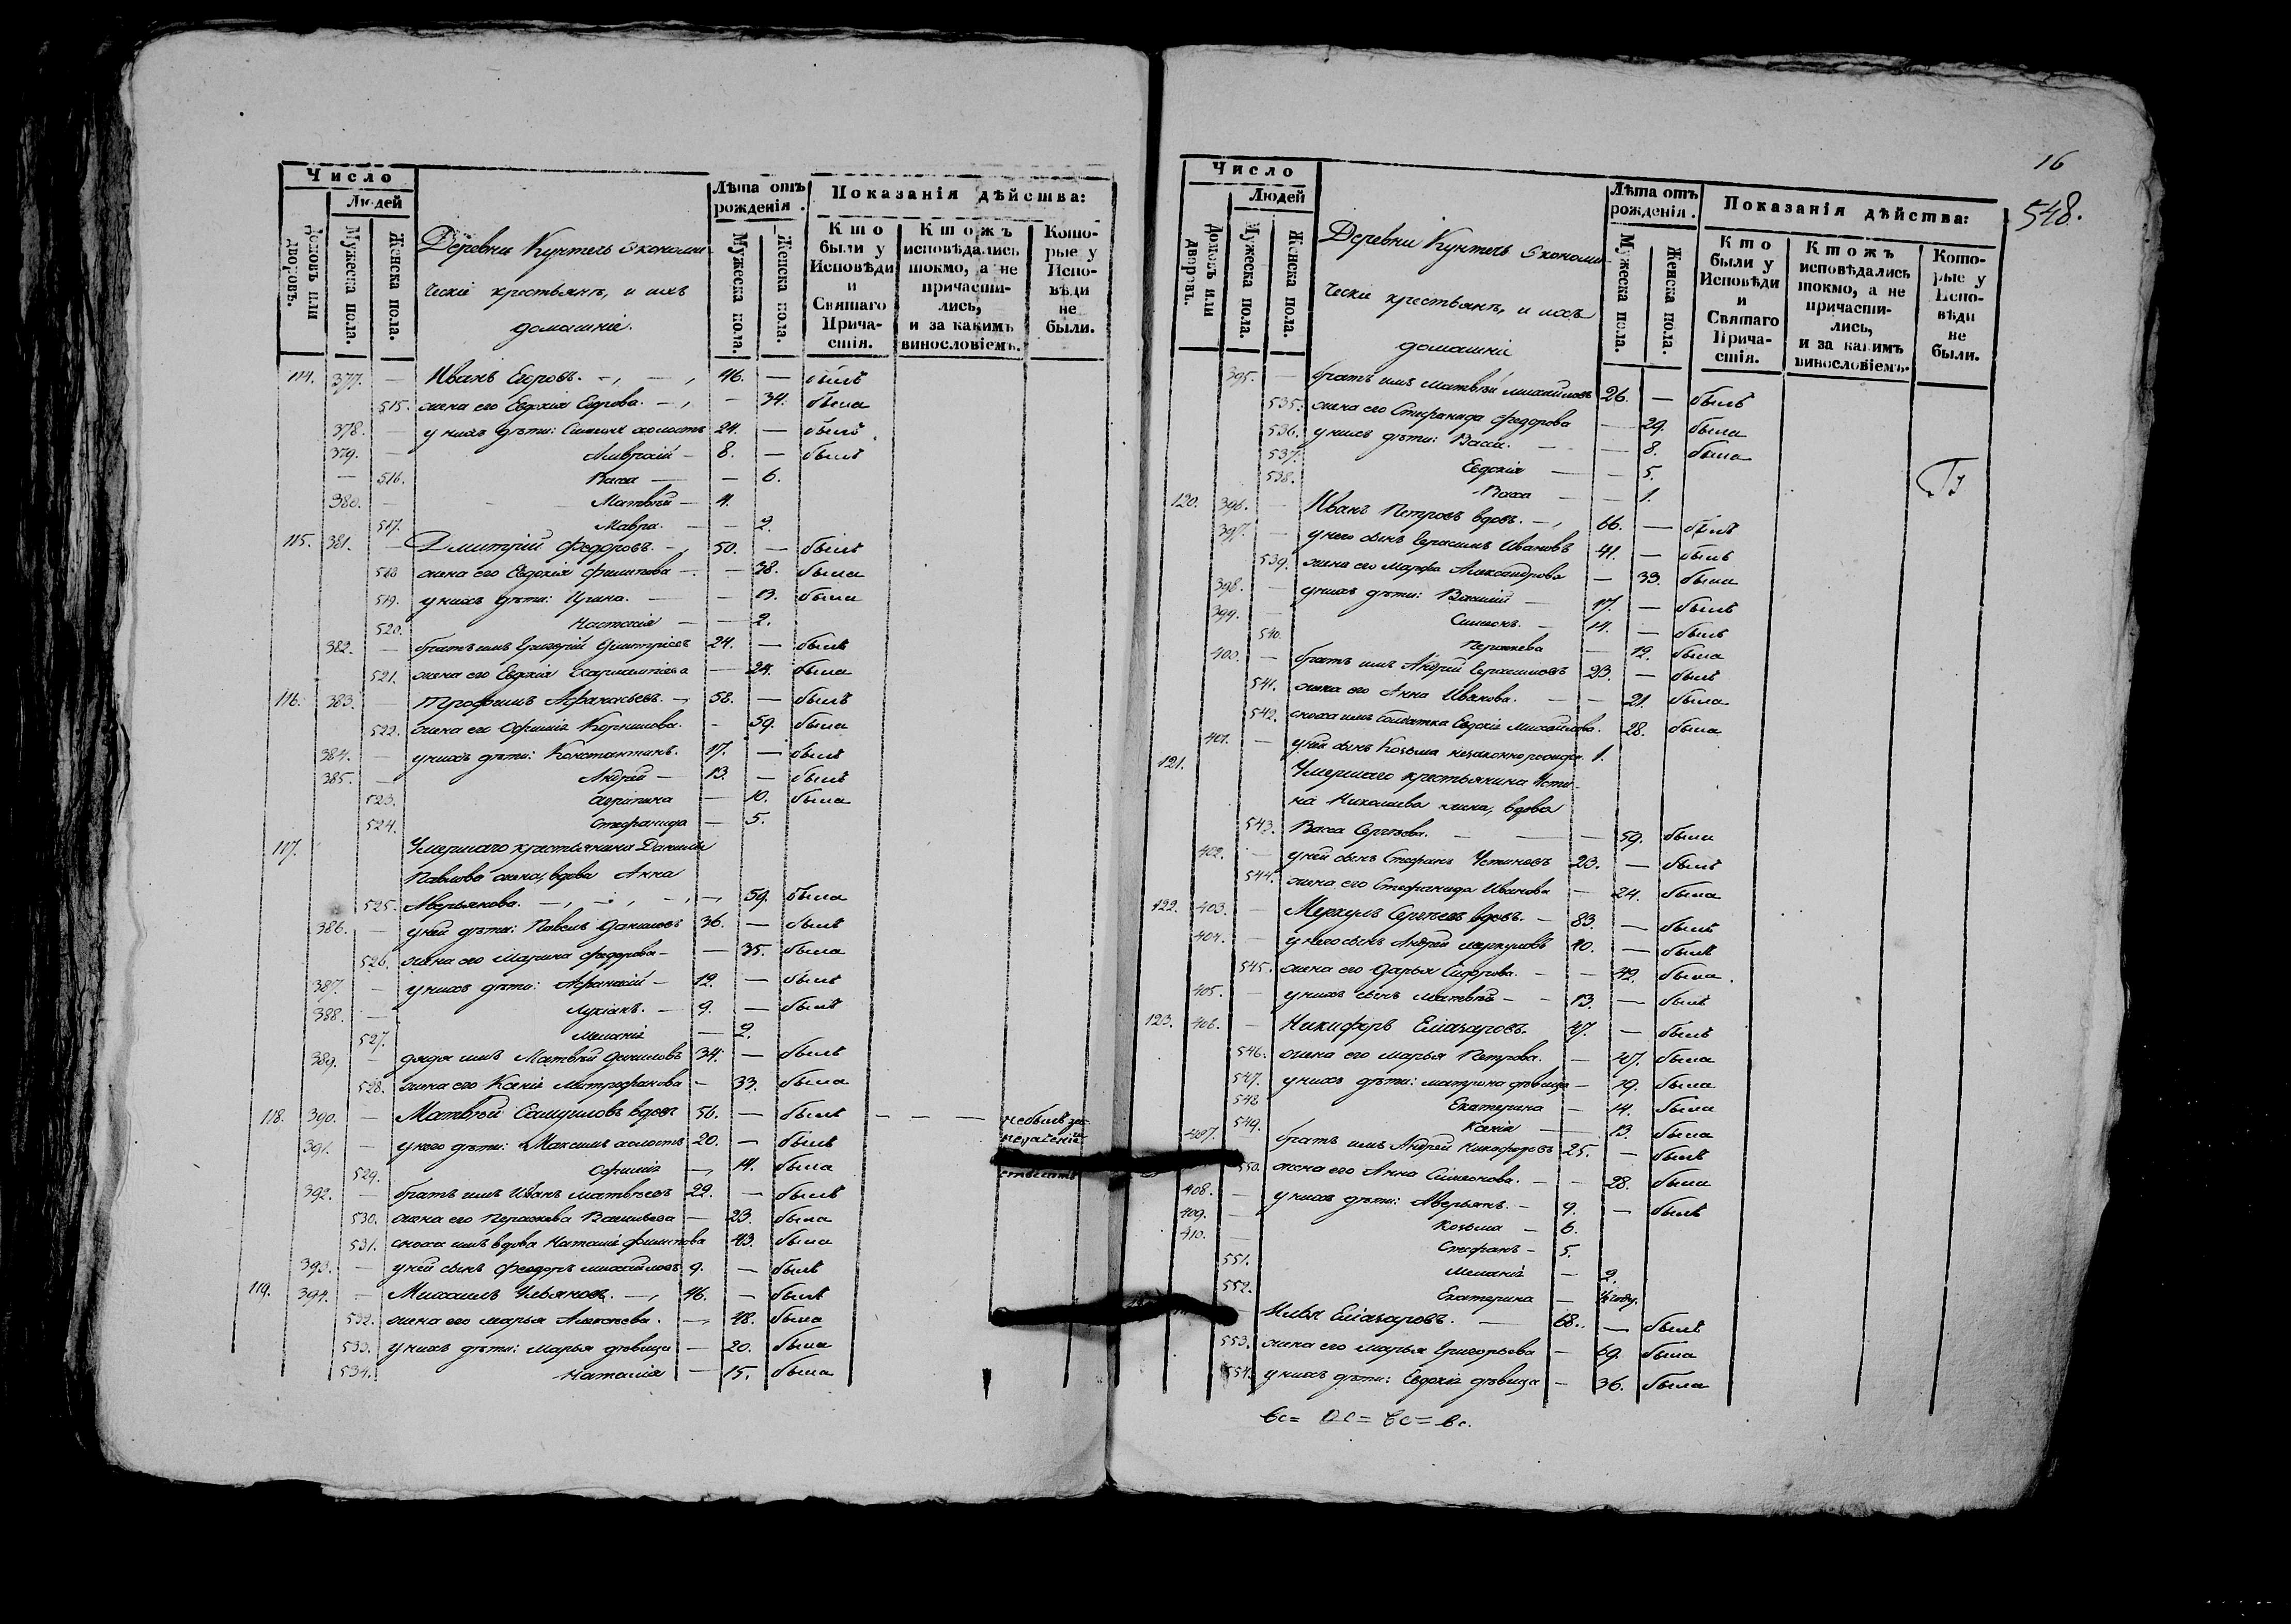 Число
Людей
Домовъ или дворовъ.
Мужеска пола.
Женска пола.
Деревни Кунтель Экономи-
ческіе крестьянъ, и ихъ
домашніе.
Лѣта отъ рожденія.
Мужеска пола.
Женска пола.
Показанія дѣйства:
Кто были у Исповѣди и Святаго Причастія.
Ктожъ исповѣдались токмо, а не причастились, и за какимъ винословіемъ.
Которые у Исповѣди не были.
114. 377. — Иванъ Егоровъ. 46. — былъ
515. жена его Евдокія Егорова. — 34. была
378. — у нихъ дѣти: Симеонъ холостъ 24. — былъ
379. — 8. — былъ
— 516. Васса — 6.
380. — Матвѣй — 4.
517. Мавра. — 2.
115. 381. — Димитрій Федоровъ. 50. — былъ
518 жена его Евдокія Филипова — 38. была
519. у нихъ дѣти: Ирина. — 13. была
520. Настасія — 2.
382. — братъ имъ Григорій Димитріевъ 24. — былъ
521. жена его Евдокія Харлампіева — 24. была
116. 383. — Трофимъ Афанасьевъ. 58. — былъ
522. жена его Офимія Корнилова. — 59. была
384. — у нихъ дѣти: Константинъ. 17. — былъ
385. — Андрей — 13. — былъ
523. Агрипина — 10. была
524. Стефанида — 5.
117. Умершаго крестьянина Данила
Павлова жена, вдова Анна
525. Аверьянова. 59. была
386. — у ней дѣти: Павелъ Даниловъ 36. — былъ
526. жена его Марина Федорова — 35. была
387. — у нихъ дѣти: Афанасій — 12. — былъ
388. — Лукіанъ. — 9. — былъ
527. Меланія — 2.
389. — дядя имъ Матвѣй Даниловъ 34. — былъ
528. жена его Ксенія Митрофанова — 33. была
118. 390. — Матвѣй Самуиловъ вдовъ 56. — былъ — — — небылъ за
391. — у него дѣти: Максимъ холостъ 20. — былъ
529. Офимія — 14. была
392. — братъ имъ Иванъ Матвѣевъ 22. — былъ
530. жена его Перасковья Васильева — 23. была
531. сноха имъ вдова Наталія Филипова 43. была
393. — у ней сынъ Феодоръ Михайловъ 9. — былъ
119. 394. — Михаилъ Ульяновъ. 46. — былъ
532. жена его Марья Алексѣева. — 48. была
533. у нихъ дѣти: Марья дѣвица — 20. была
534. Наталія — 15. была
16
548.
Число
Людей
Домовъ или дворовъ.
Мужеска пола.
Женска пола.
Деревни Кунтель Экономи-
ческіе крестьянъ, и ихъ
домашніе
Лѣта отъ рожденія.
Мужеска пола.
Женска пола.
Показанія дѣйства:
Кто были у Исповѣди и Святаго Причастія.
Ктожъ исповѣдались токмо, а не причастились, и за какимъ винословіемъ.
Которые у Исповѣди не были.
395. — братъ имъ Матвѣй Михайловъ 26. — былъ
535. жена его Стефанида Федорова — 29. была
536. у нихъ дѣти: Васса. — 8. была
537. Евдокія — 5.
538. Васса — 1.
120. 396. — Иванъ Петровъ вдовъ. 66. — былъ
397. — у него сынъ Герасимъ Ивановъ 41. — былъ
539. жена его Марфа Александрова — 33. была
398. — у нихъ дѣти: Василій — 17. — былъ
399. — Симеонъ. — 14. — былъ
540. Перасковья — 12. была
400. — братъ имъ Андрей Герасимовъ 23. — былъ
541. жена его Анна Иванова. — 21. была
542. сноха имъ солдатка Евдокія Михайлова. 28. была
401. — у ней сынъ Козьма незаконнорожден. 1.
121. Умершаго крестьянина Усти-
на Николаева жена, вдова
543. Васса Сергѣева. — 59. была
402. — у ней сынъ Стефанъ Устиновъ 23. — былъ
544. жена его Стефанида Иванова — 24. была
122. 403. — Меркулъ Сергѣевъ вдовъ. — 83. — былъ
404. — у него сынъ Андрей Меркуловъ 40. — былъ
545. жена его Дарья Сидорова. — 42. была.
405. — у нихъ сынъ Матвѣй — 13. — былъ
123. 406. — Никифоръ Еліазаровъ. 47. — былъ
546. жена его Марья Петрова. — 47. была
547. у нихъ дѣти: Матрона дѣвица — 19. была
548 Екатерина — 14. была
549. Ксенія — 13. была
407. братъ имъ Андрей Никифоровъ 25. — былъ
550. жена его Анна Симеонова. — 28. была
408. — у нихъ дѣти: Аверьянъ. — 9. — былъ
409. — Козьма — 6.
410. — Стефанъ — 5.
551. Меланія — 2.
552. Екатерина — ½ году.
Илья Еліазаровъ. — 68. — былъ
553. жена его Марья Григорьева — 69. была
554. у нихъ дѣти: Евдокія дѣвица — 36. была